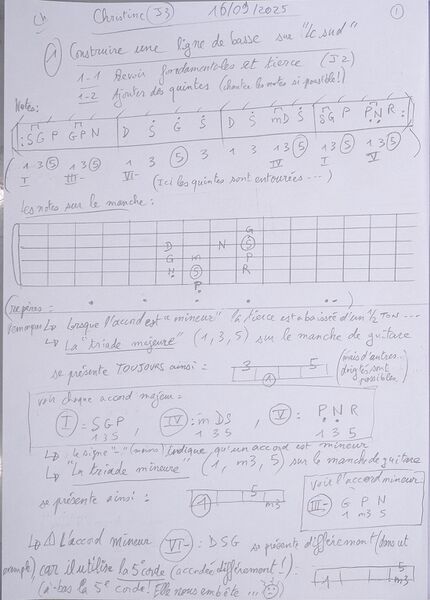 Ch Christine (J3) 16/09/2025 ①
① Construire une ligne de basse sur "le sud"
1-1 Revoir fondamentales et tierce (J2)
1-2 Ajouter des quintes (chanter les notes si possible!)
Notes:
: S G P G P N | D S G S | D S m D S | S G P P N R :
( 1 3 ⑤ 1 3 ⑤ 1 3 ⑤ 3 1 3 1 3 ⑤ 1 3 ⑤ 1 3 ⑤ )
I III- VI- IV I V
(Ici les quintes sont entourées ...)
Les notes sur le manche:
G
D N S
G m P
N S R
P
(repères:
Remarques ↳ Lorsque l'accord est "mineur" la tierce est abaissée d'un 1/2 Ton ...
↳ La "triade majeure" (1, 3, 5) sur le manche de guitare
se présente TOUJOURS ainsi: 3 5 ① (mais d'autres... doigtés sont possibles)
voir chaque accord majeur:
I = S G P , IV = m D S , V = P N R
1 3 5 1 3 5 1 3 5
↳ le signe "-" (moins) indique qu'un accord est mineur
↳ "La triade mineure" (1, m3, 5) sur le manche de guitare
se présente ainsi: ① 5 m3
voir l'accord mineur
III- G P N
1 m3 5
↳ ⚠ L'accord mineur VI- = D S G se présente différemment (dans cet
exemple), car il utilise la 5e corde (accordée différemment!):
(à-bas la 5e corde! Elle nous embête ... ) 1 m3 5